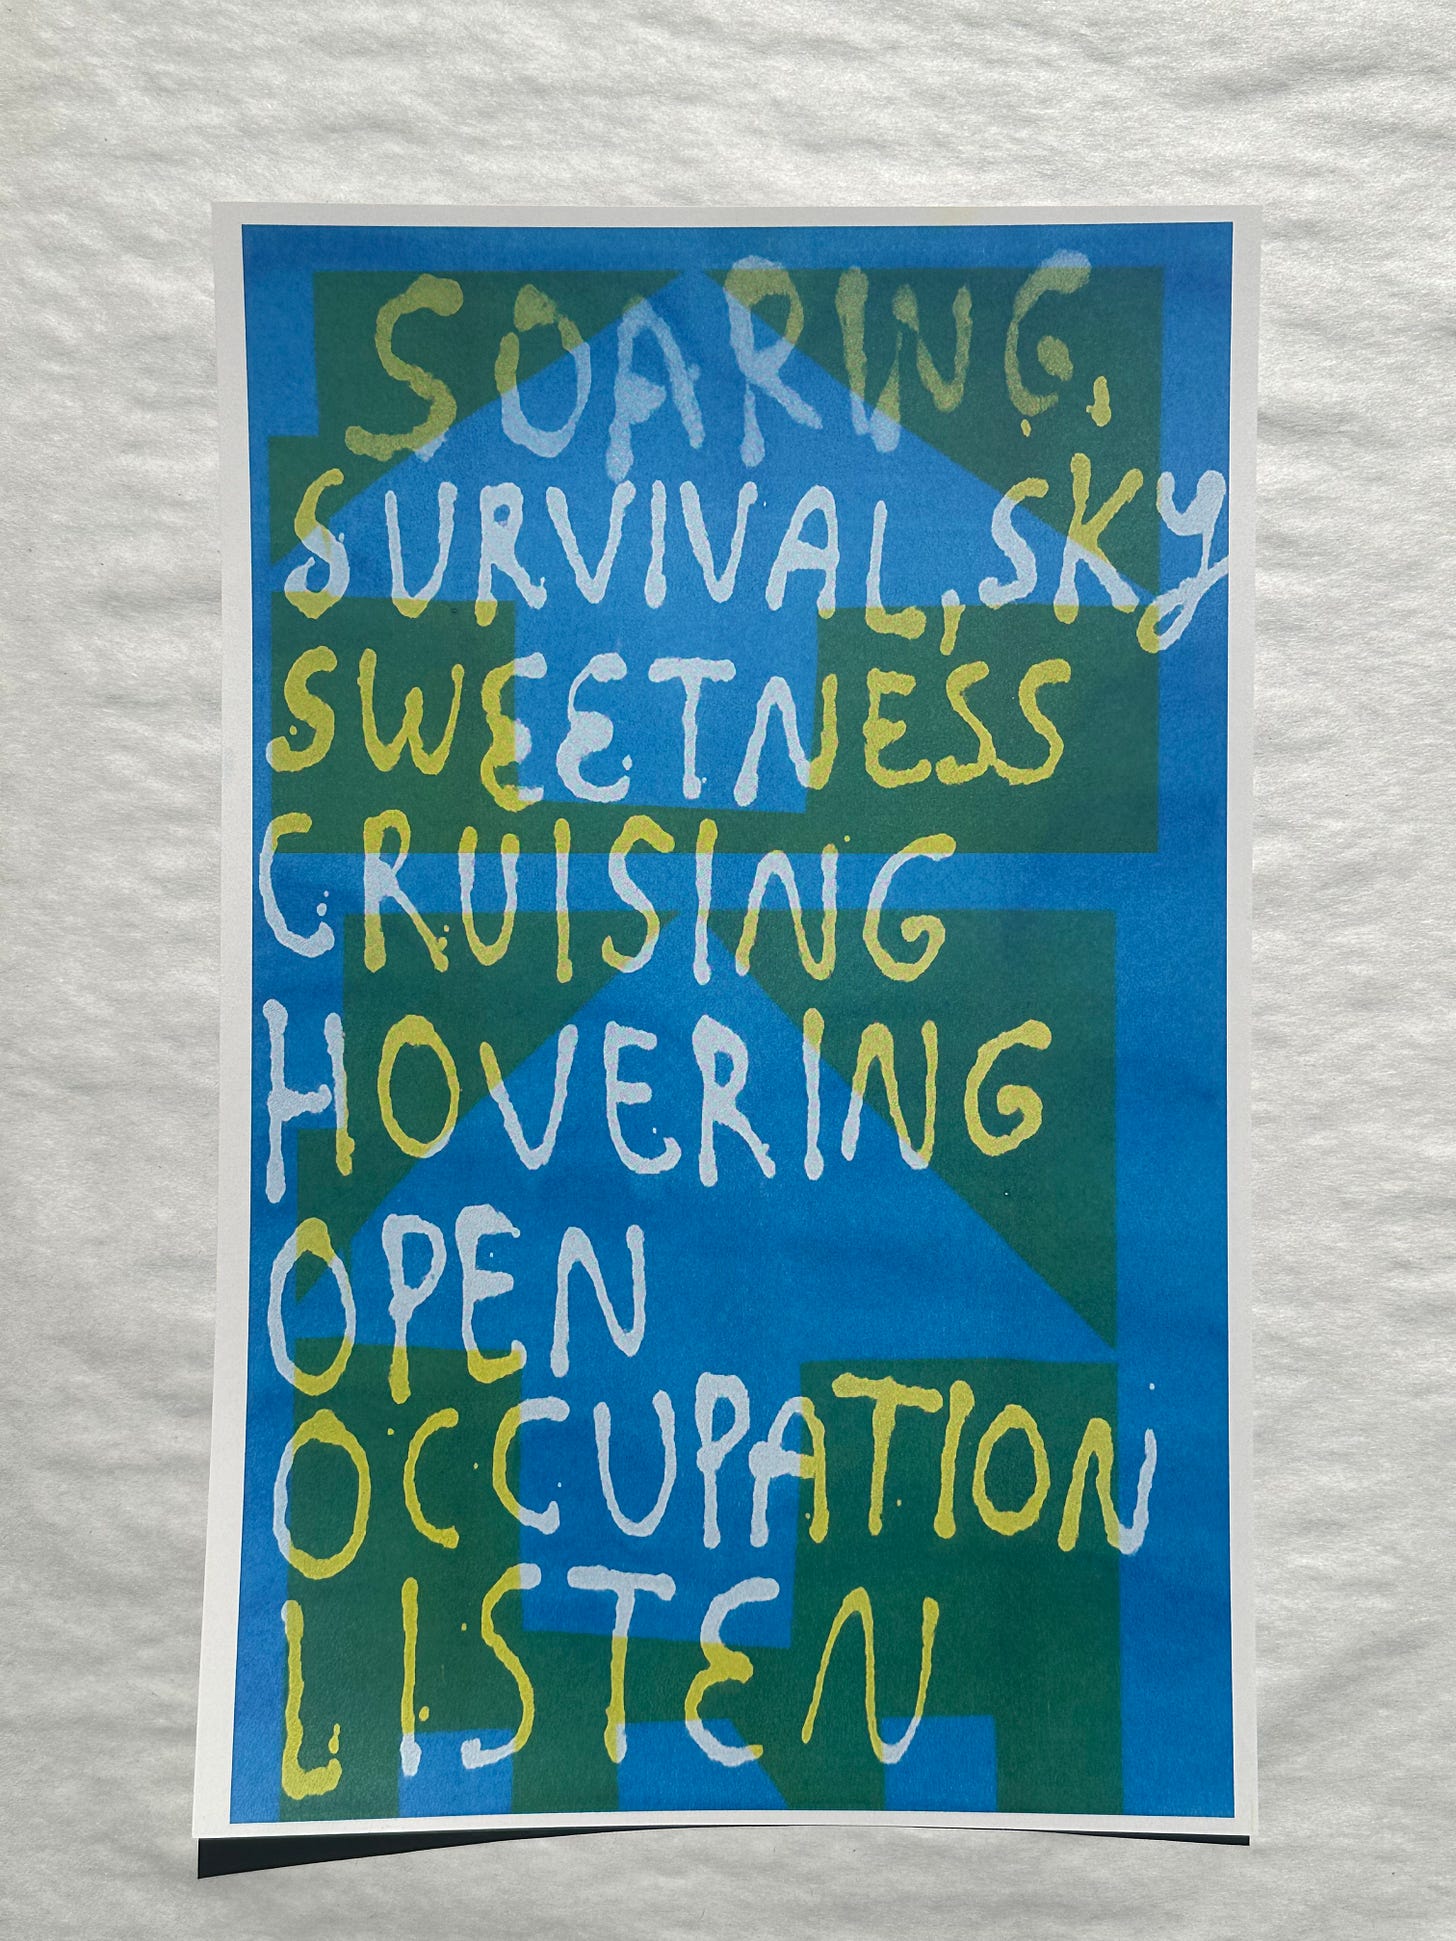 SOARING,
SURVIVAL, SKY
SWEETNESS
CRUISING
HOVERING
OPEN
OCCUPATION
LISTEN